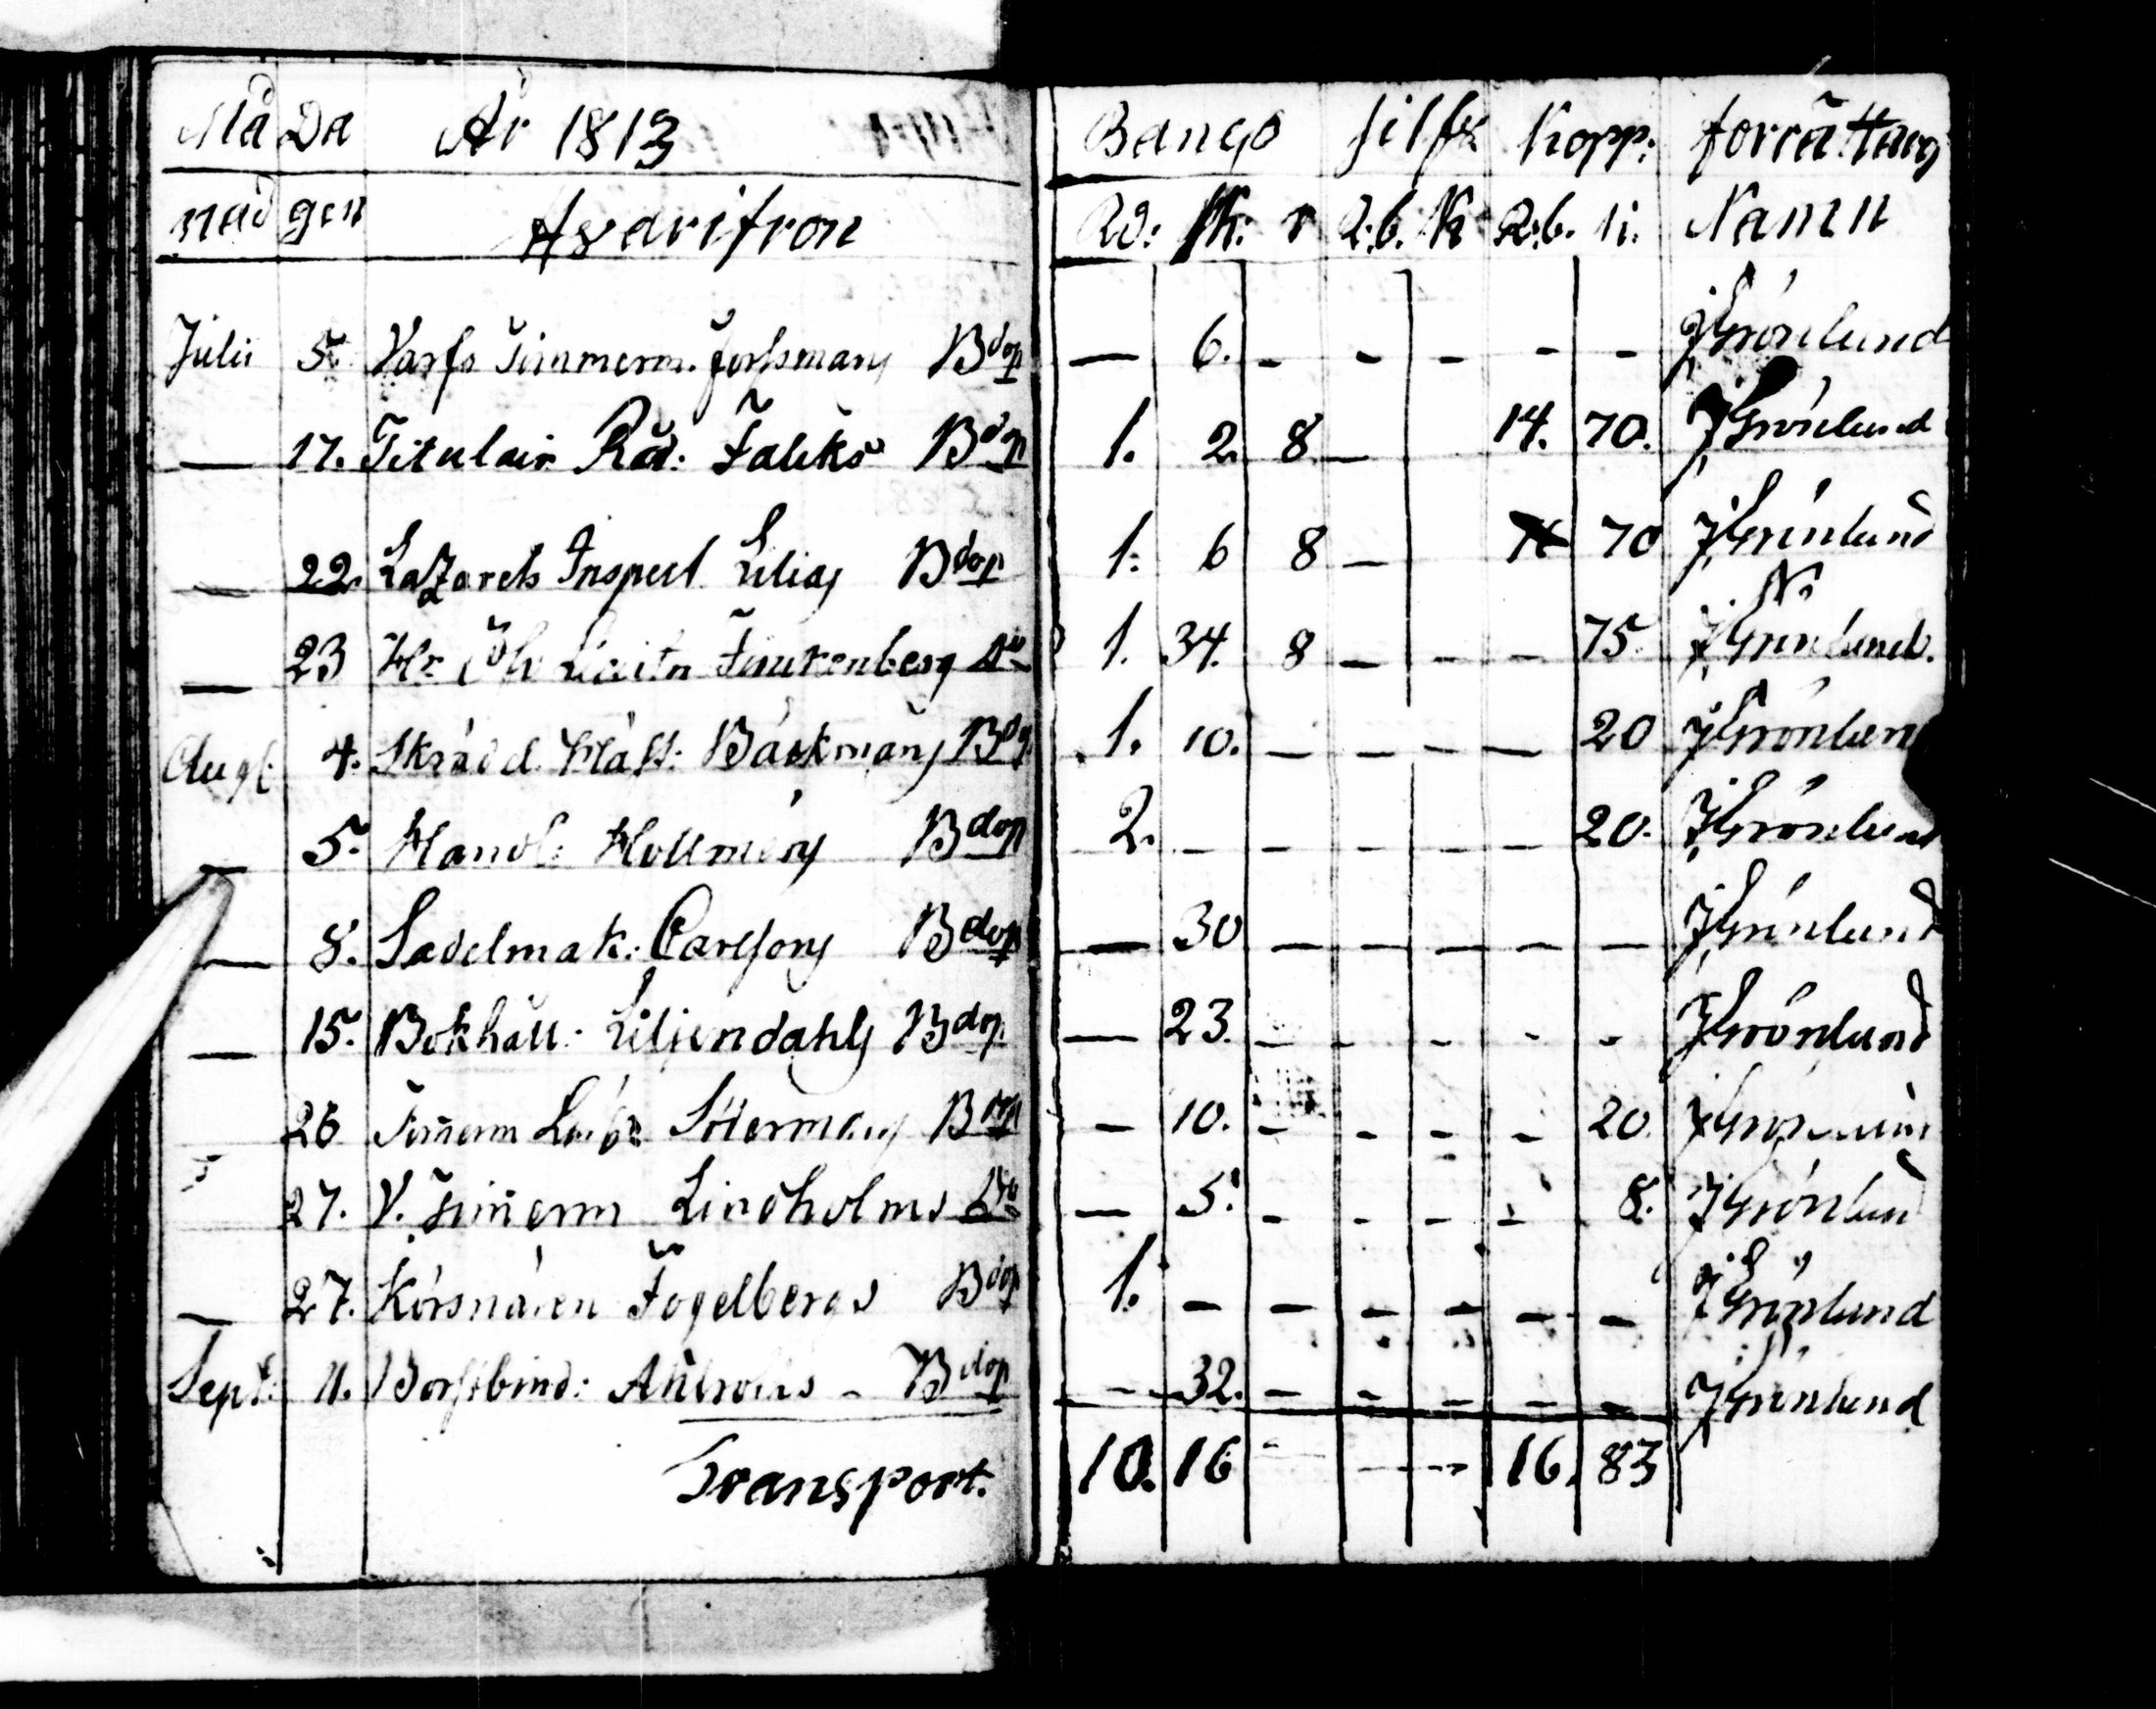 Må Da År 1813 Banco silfr Kopp: forrättang
nad gen Rd: sk: r R:b. K R:b. K. Namn
Julii 5. Varfs Timmerm. Forssmans Bdop — 6. - - - - - J Grönlund
— 17. Titulair Råd: Faleks Bdop 1. 2. 8. — 14. 70. J Grönlund
— 22. Lazarets Inspect Lilias Bdop 1. 6 8 — 70 J Grönlund
— 23 Hr Faukenberg do 1. 34. 8 — - - 75. J Grönlund.
Augt: 4. Skrädd. Mäst: Bäckmans Bdop 1. 10. — — — — 20 J Grönlund
— 5. Handl: Hollmens Bdop 2. - - - - - 20. J Grönlund
— 8. Sadelmak: Carlsons Bdop — 30 — — — — — J Grönlund
— 15. Bokhåll: Liljendahls Bdop — 23. - - - - - J Grönlund
26 Timerm Södermans Bdop — 10. - - - - 20. J Grönlund
27. V. Timerm Lindholms do — 5. - - - - 8. J Grönlund
— 27. Körsnären Fogelbergs Bdop 1. - - - - - - J Grönlund
Sept: 11. Borstbind: Ahlroths - Bdop - 32. - - - - - J Grönlund
Transport. 10. 16 - - - 16. 83